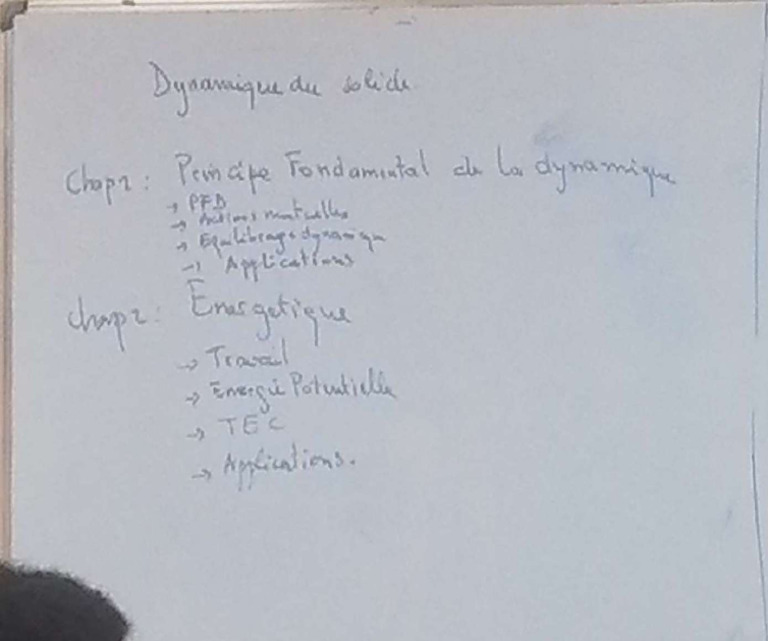 Dynamique du solide
Chap1 : Principe Fondamental de la dynamique
→ PFD
→ Actions mutuelles
→ Equilibrage dynamique
→ Applications
Chap2 : Energetique
→ Travail
→ Energie Potentielle
→ TEC
→ Applications.